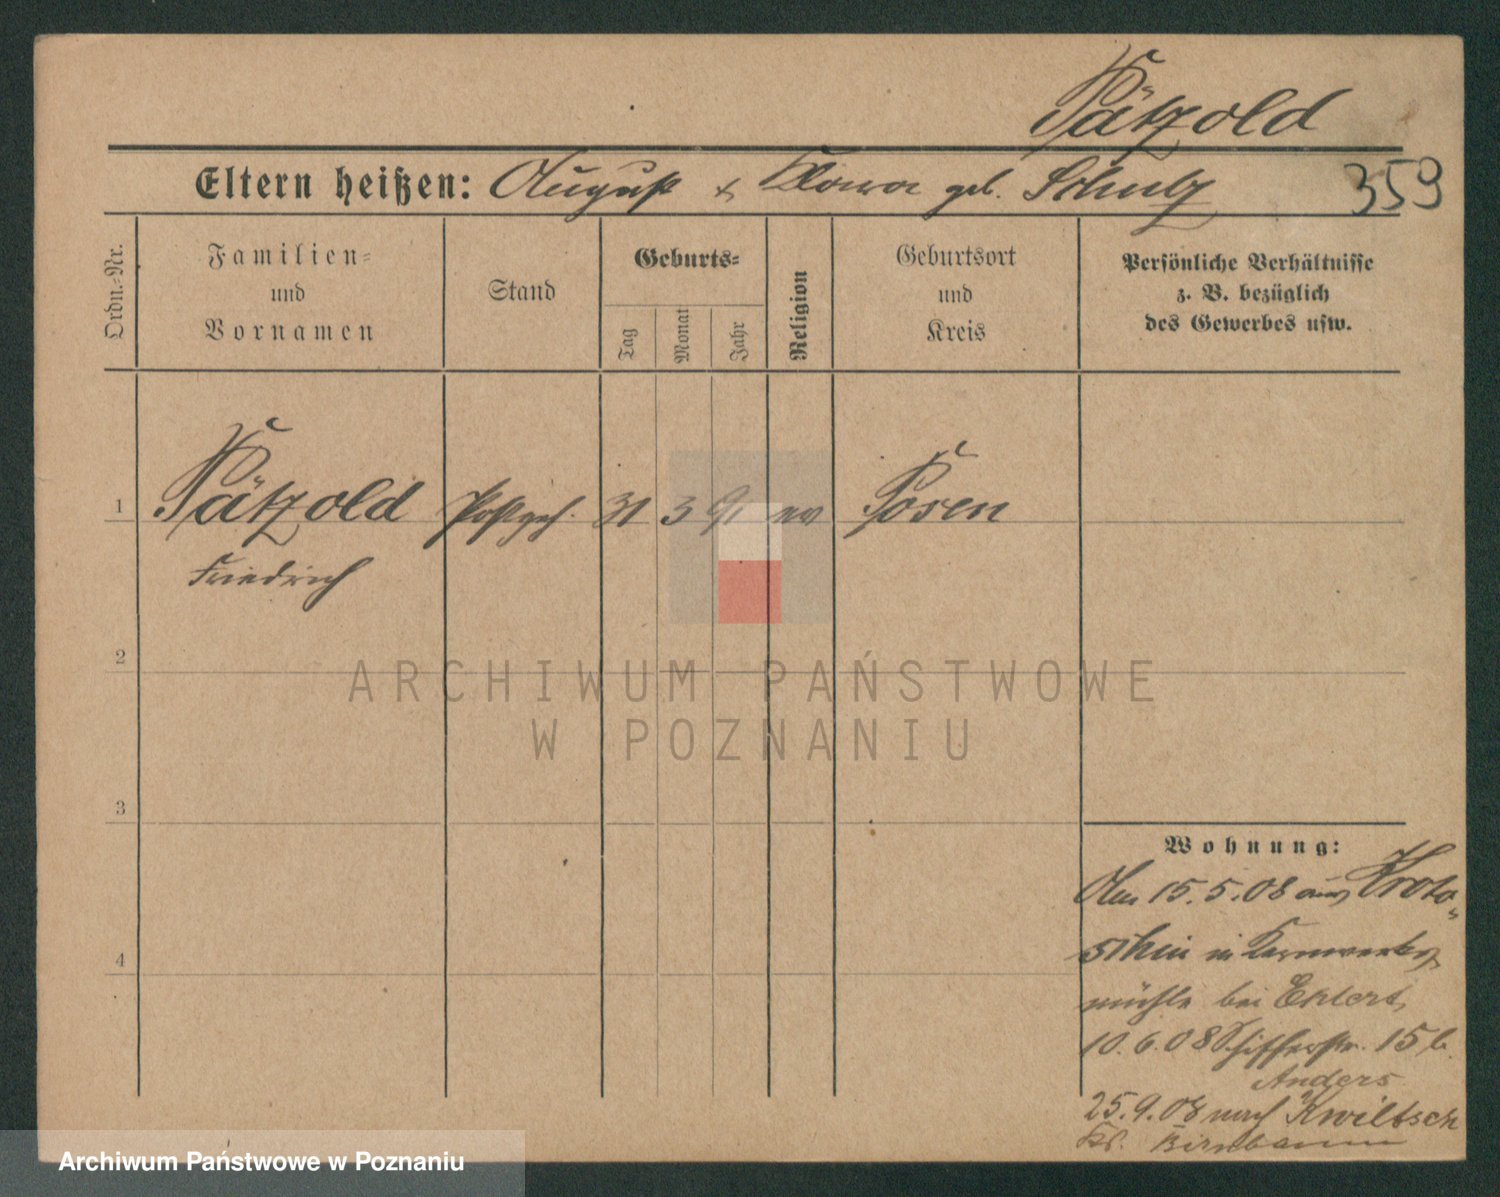 Pätzold
Eltern heißen: August & Klara geb. Schulz 359
Ordn.=Nr.
Familien=
und
Vornamen
Stand
Geburts=
Tag
Monat
Jahr
Religion
Geburtsort
und
Kreis
Persönliche Verhältnisse
z. B. bezüglich
des Gewerbes usw.
1 Pätzold Postgeh. 31 3 91 ev Posen
Friedrich
2
3
4
Wohnung:
15.5.08 aus Kroto=
schin in Kernwerks
mühle bei Ehlert,
10.6.08 Schifferstr. 15 b.
Anders
25.9.08 nach Kwiltsch
Kr. Birnbaum
ARCHIWUM PAŃSTWOWE
W POZNANIU
Archiwum Państwowe w Poznaniu